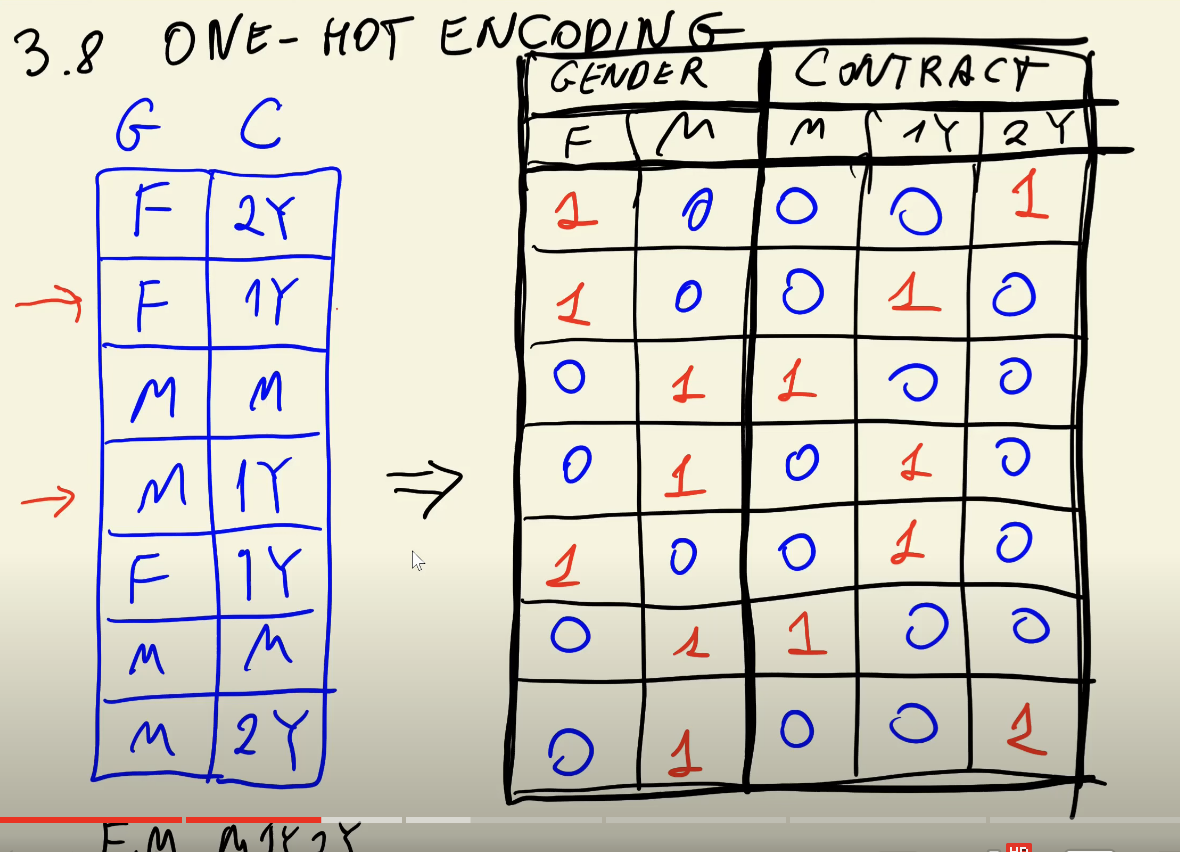 3.8 ONE-HOT ENCODING
G C
F 2Y
F 1Y
M M
M 1Y
F 1Y
M M
M 2Y
GENDER CONTRACT
F M M 1Y 2Y
1 0 0 0 1
1 0 0 1 0
0 1 1 0 0
0 1 0 1 0
1 0 0 1 0
0 1 1 0 0
0 1 0 0 1
F M M 1Y 2Y
HD